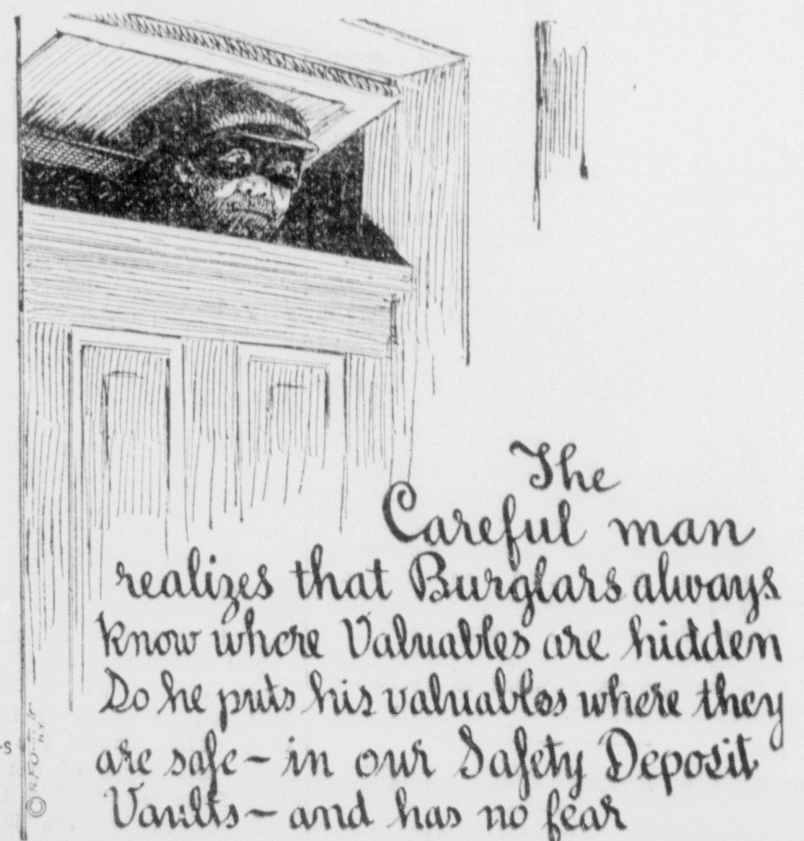 The
Careful man
realizes that Burglars always
know where Valuables are hidden
So he puts his valuables where they
are safe - in our Safety Deposit
Vaults - and has no fear